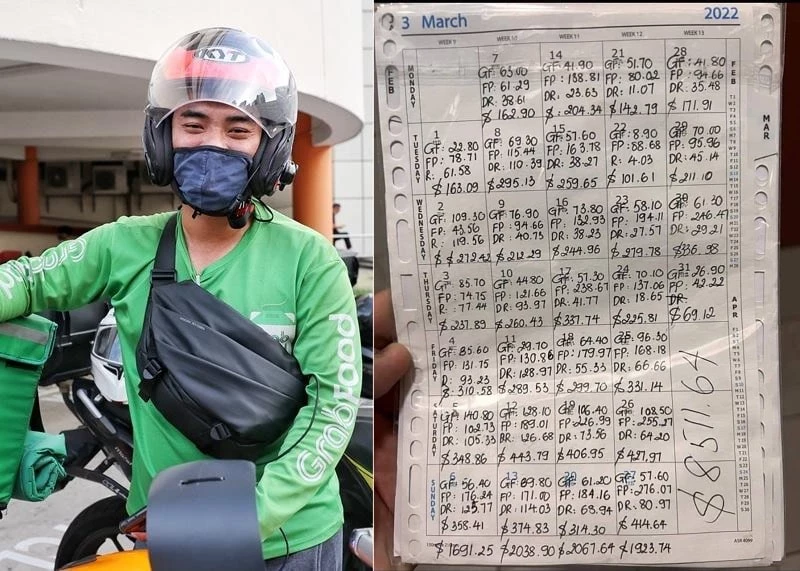 KYT
Grab
GrabFood
Grab
3 March 2022
WEEK 9 WEEK 10 WEEK 11 WEEK 12 WEEK 13
FEB
MAR
APR
FEB
MONDAY
7 14 21 28
GF: 63.00 GF: 41.90 GF: 51.70 GF: 41.80
FP: 61.29 FP: 138.81 FP: 80.02 FP: 94.66
DR: 38.61 DR: 23.63 DR: 11.07 DR: 35.48
$162.90 $204.34 $142.79 $171.91
TUESDAY
1 8 15 22 29
GF: 22.80 GF: 69.30 GF: 57.60 GF: 8.90 GF: 70.00
FP: 78.71 FP: 115.44 FP: 163.78 FP: 88.68 FP: 95.96
R: 61.58 DR: 110.39 DR: 38.27 R: 4.03 DR: 45.14
$163.09 $295.13 $259.65 $101.61 $211.10
WEDNESDAY
2 9 16 23 30
GF: 109.30 GF: 76.90 GF: 73.80 GF: 58.10 GF: 61.30
FP: 43.56 FP: 94.66 FP: 132.93 FP: 194.11 FP: 246.47
R: 119.56 DR: 40.73 DR: 38.23 DR: 27.57 DR: 29.21
$272.42 $212.29 $244.96 $279.78 $336.98
THURSDAY
3 10 17 24 31
GF: 85.70 GF: 44.80 GF: 57.30 GF: 70.10 GF: 26.90
FP: 74.75 FP: 121.66 FP: 238.67 FP: 137.06 FP: 42.22
R: 77.44 DR: 93.97 DR: 41.77 DR: 18.65 DR:
$237.89 $260.43 $337.74 $225.81 $69.12
FRIDAY
4 11 18 25
GF: 85.60 GF: 29.70 GF: 64.40 GF: 96.30
FP: 131.75 FP: 130.86 FP: 179.97 FP: 168.18
R: 93.23 DR: 128.97 DR: 55.33 DR: 66.66
$310.58 $289.53 $299.70 $331.14
SATURDAY
5 12 19 26
GF: 140.80 GF: 128.10 GF: 106.40 GF: 108.50
FP: 102.73 FP: 189.01 FP: 226.99 FP: 255.27
DR: 105.33 DR: 126.68 DR: 73.56 DR: 64.20
$348.86 $443.79 $406.95 $427.97
SUNDAY
6 13 20 27
GF: 56.40 GF: 89.80 GF: 61.20 GF: 57.60
FP: 176.24 FP: 171.00 FP: 184.16 FP: 276.07
DR: 125.77 DR: 114.03 DR: 68.94 DR: 80.97
$358.41 $374.83 $314.30 $414.64
$1691.25 $2038.90 $2067.64 $1923.74
$8511.64